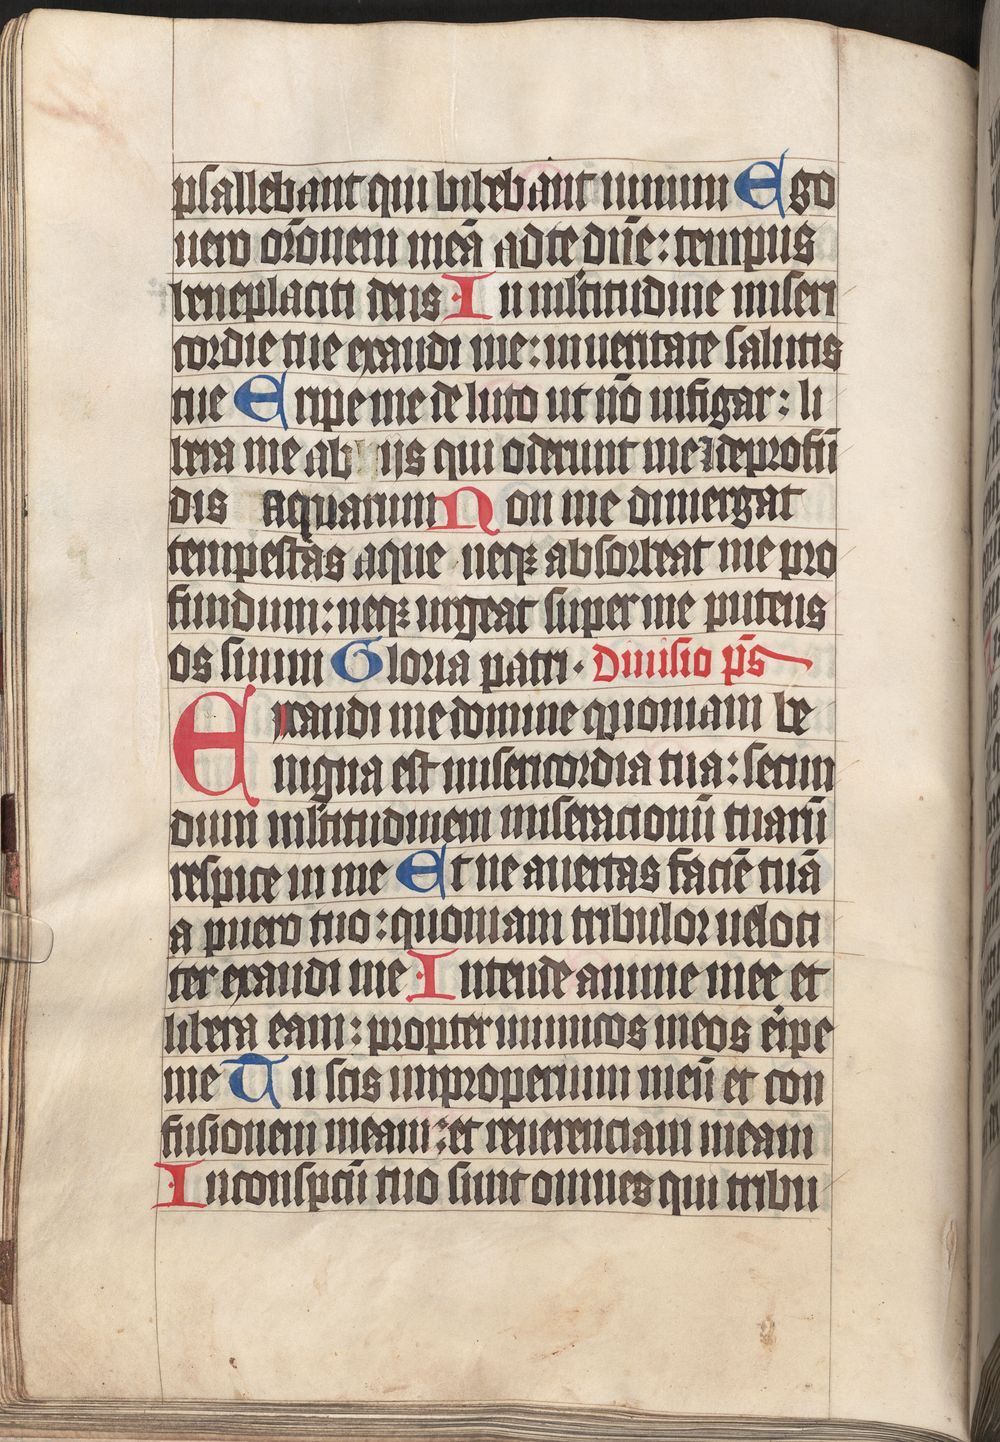 psallebant qui bibebant uinum Ego
uero or̄onem meā ad te dn̄e : tempus
beneplaciti deus In ml̓titudine miseri
cordie tue exaudi me : in ueritate salutis
tue Eripe me de luto ut nō infigar : li
bera me ab hijs qui oderunt me ⁊ de profū
dis aquarum Non me dimergat
tempestas aque neqꝫ absorbeat me pro
fundum : neqꝫ urgeat super me puteus
os suum Gloria patri · Diuisio p̄s
Exaudi me domine quoniam be
nigna est misericordia tua : secun
dum ml̓titudinem miseracionū tuarū
respice in me Et ne auertas faciē tuā
a puero tuo : quoniam tribulor ueloci
ter exaudi me Intende anime mee et
libera eam : propter inimicos meos eripe
me Tu scis improperium meū et con
fusionem meam : et reuerenciam meam
In conspc̄u tuo sunt omnes qui tribu